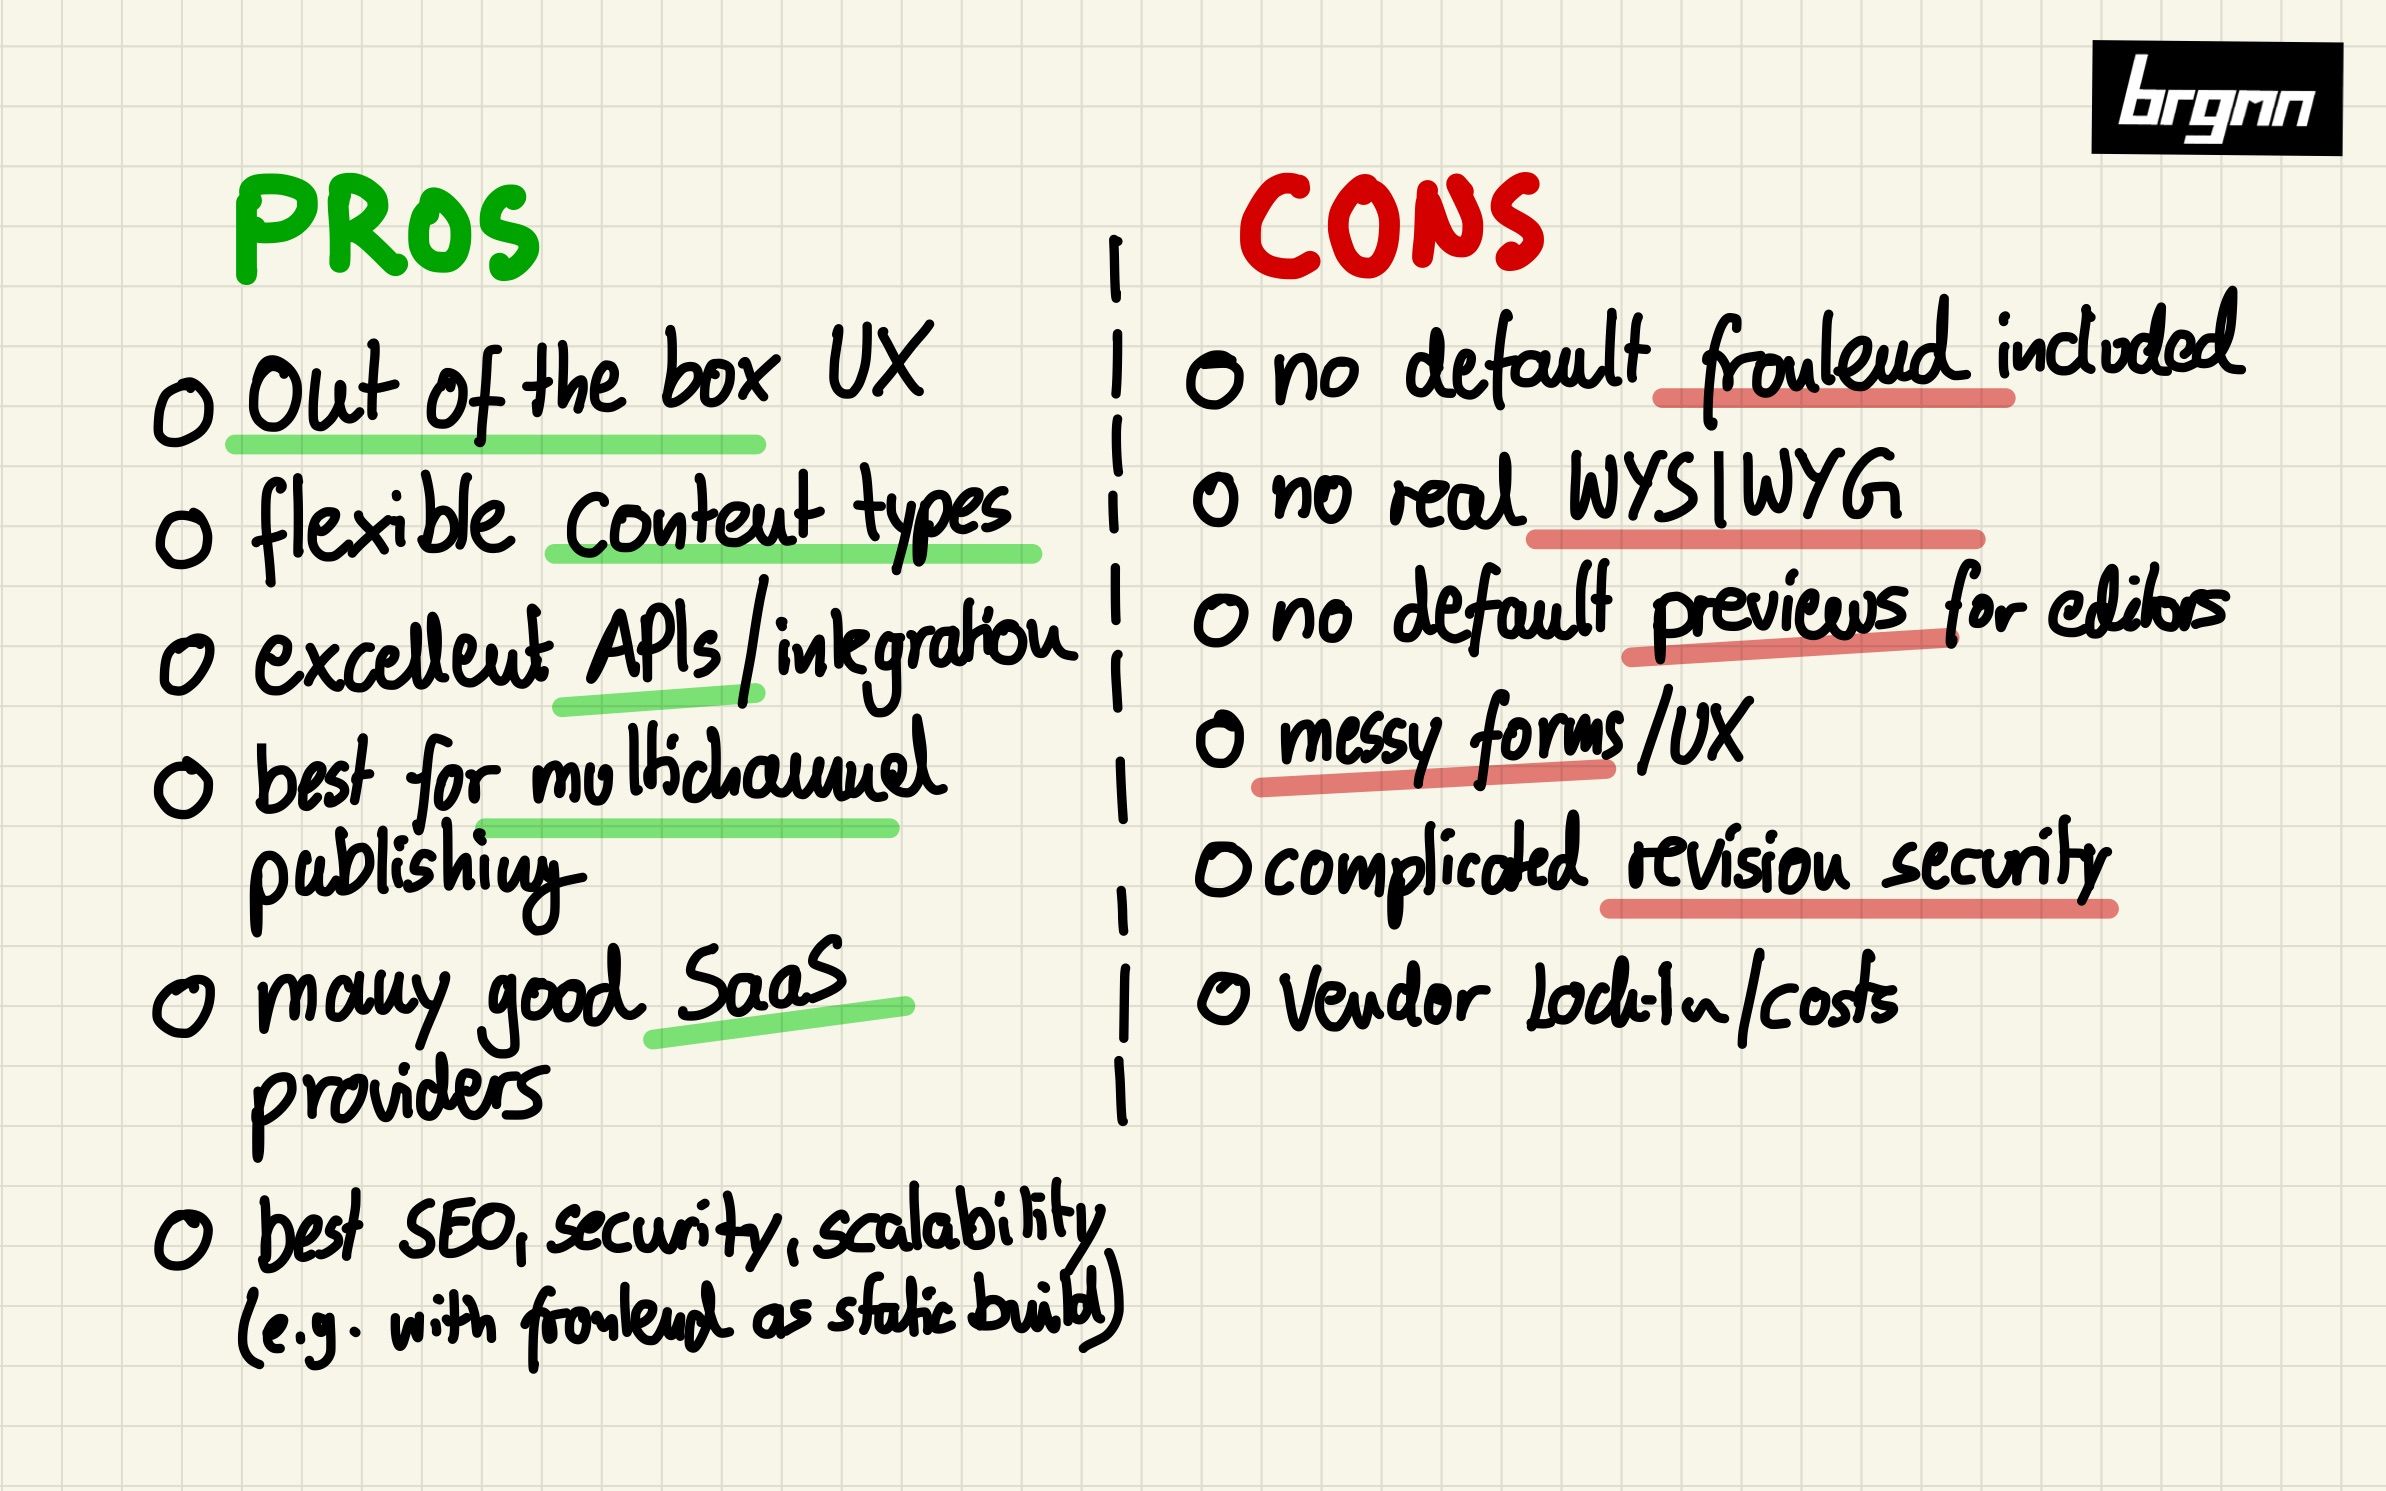 brgmn
PROS
Out of the box UX
flexible content types
excellent APIs/integration
best for multichannel
publishing
many good SaaS
providers
best SEO, security, scalability
(e.g. with frontend as static build)
CONS
no default frontend included
no real WYSIWYG
no default previews for editors
messy forms/UX
complicated revision security
Vendor Lock-In/costs